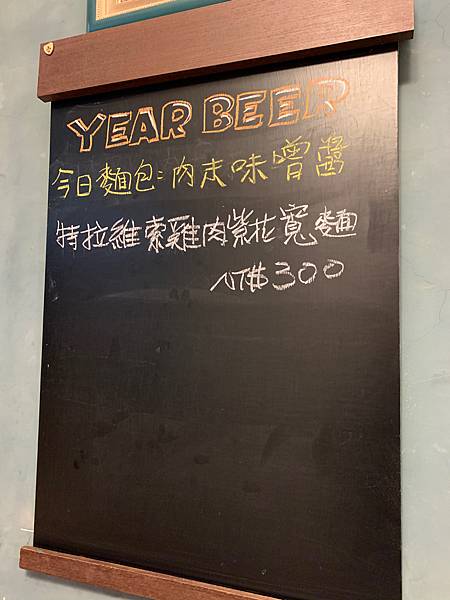 YEAR BEER
今日麵包:肉末味噌醬
特拉維索雞肉紫花寬麵
NT$300